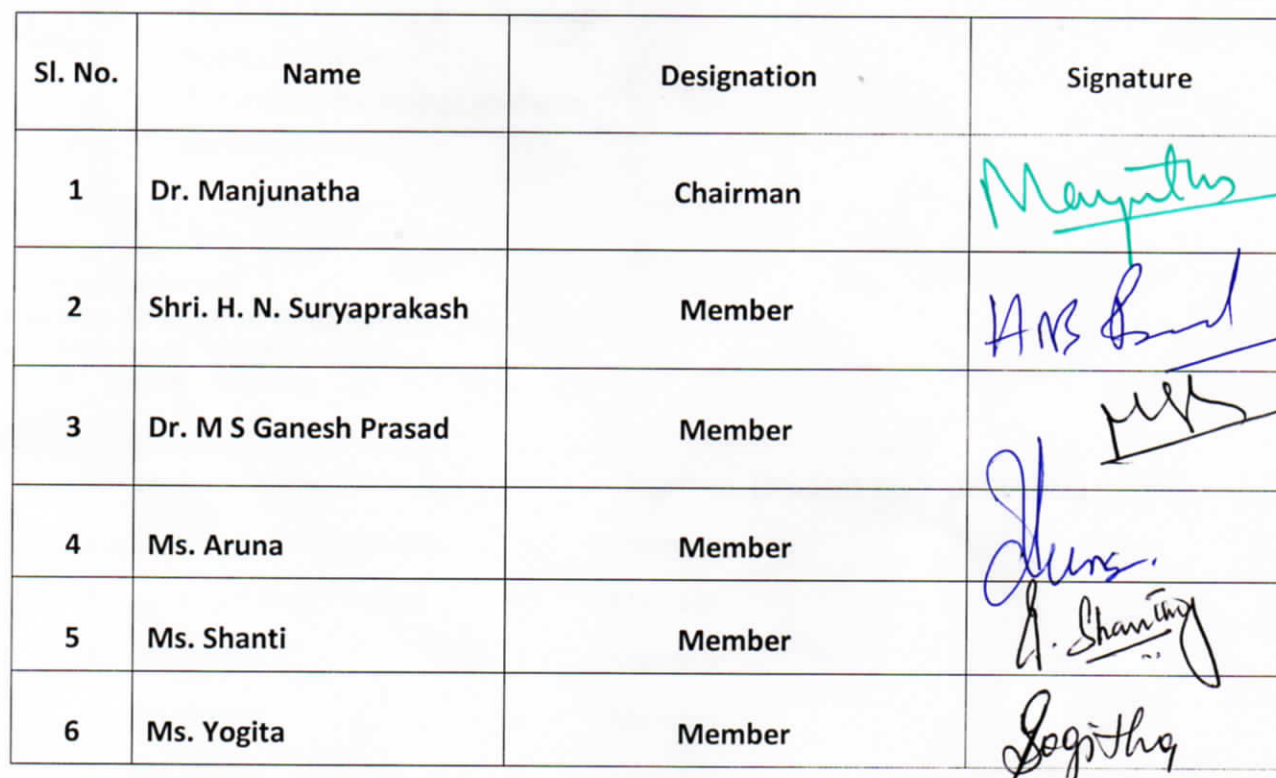 Sl. No. Name Designation Signature
1 Dr. Manjunatha Chairman
2 Shri. H. N. Suryaprakash Member
3 Dr. M S Ganesh Prasad Member
4 Ms. Aruna Member
5 Ms. Shanti Member
6 Ms. Yogita Member Yogitha